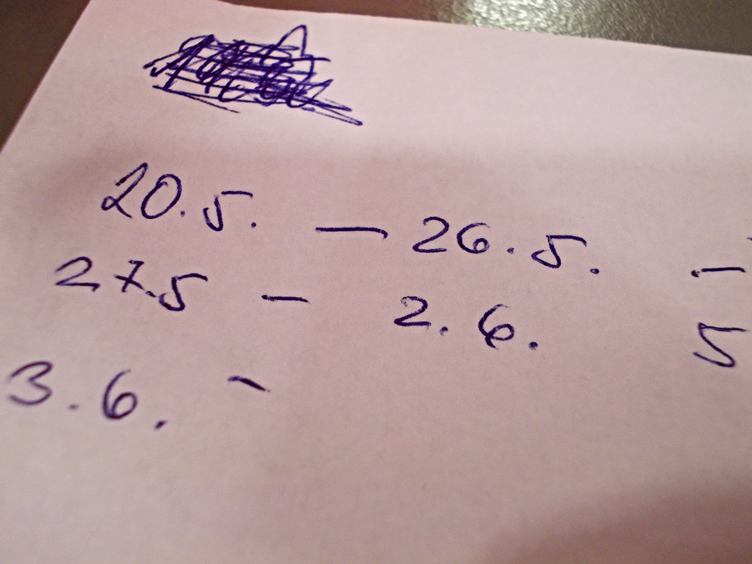 20.5. — 26.5. -
27.5 - 2.6. 5
3.6. -